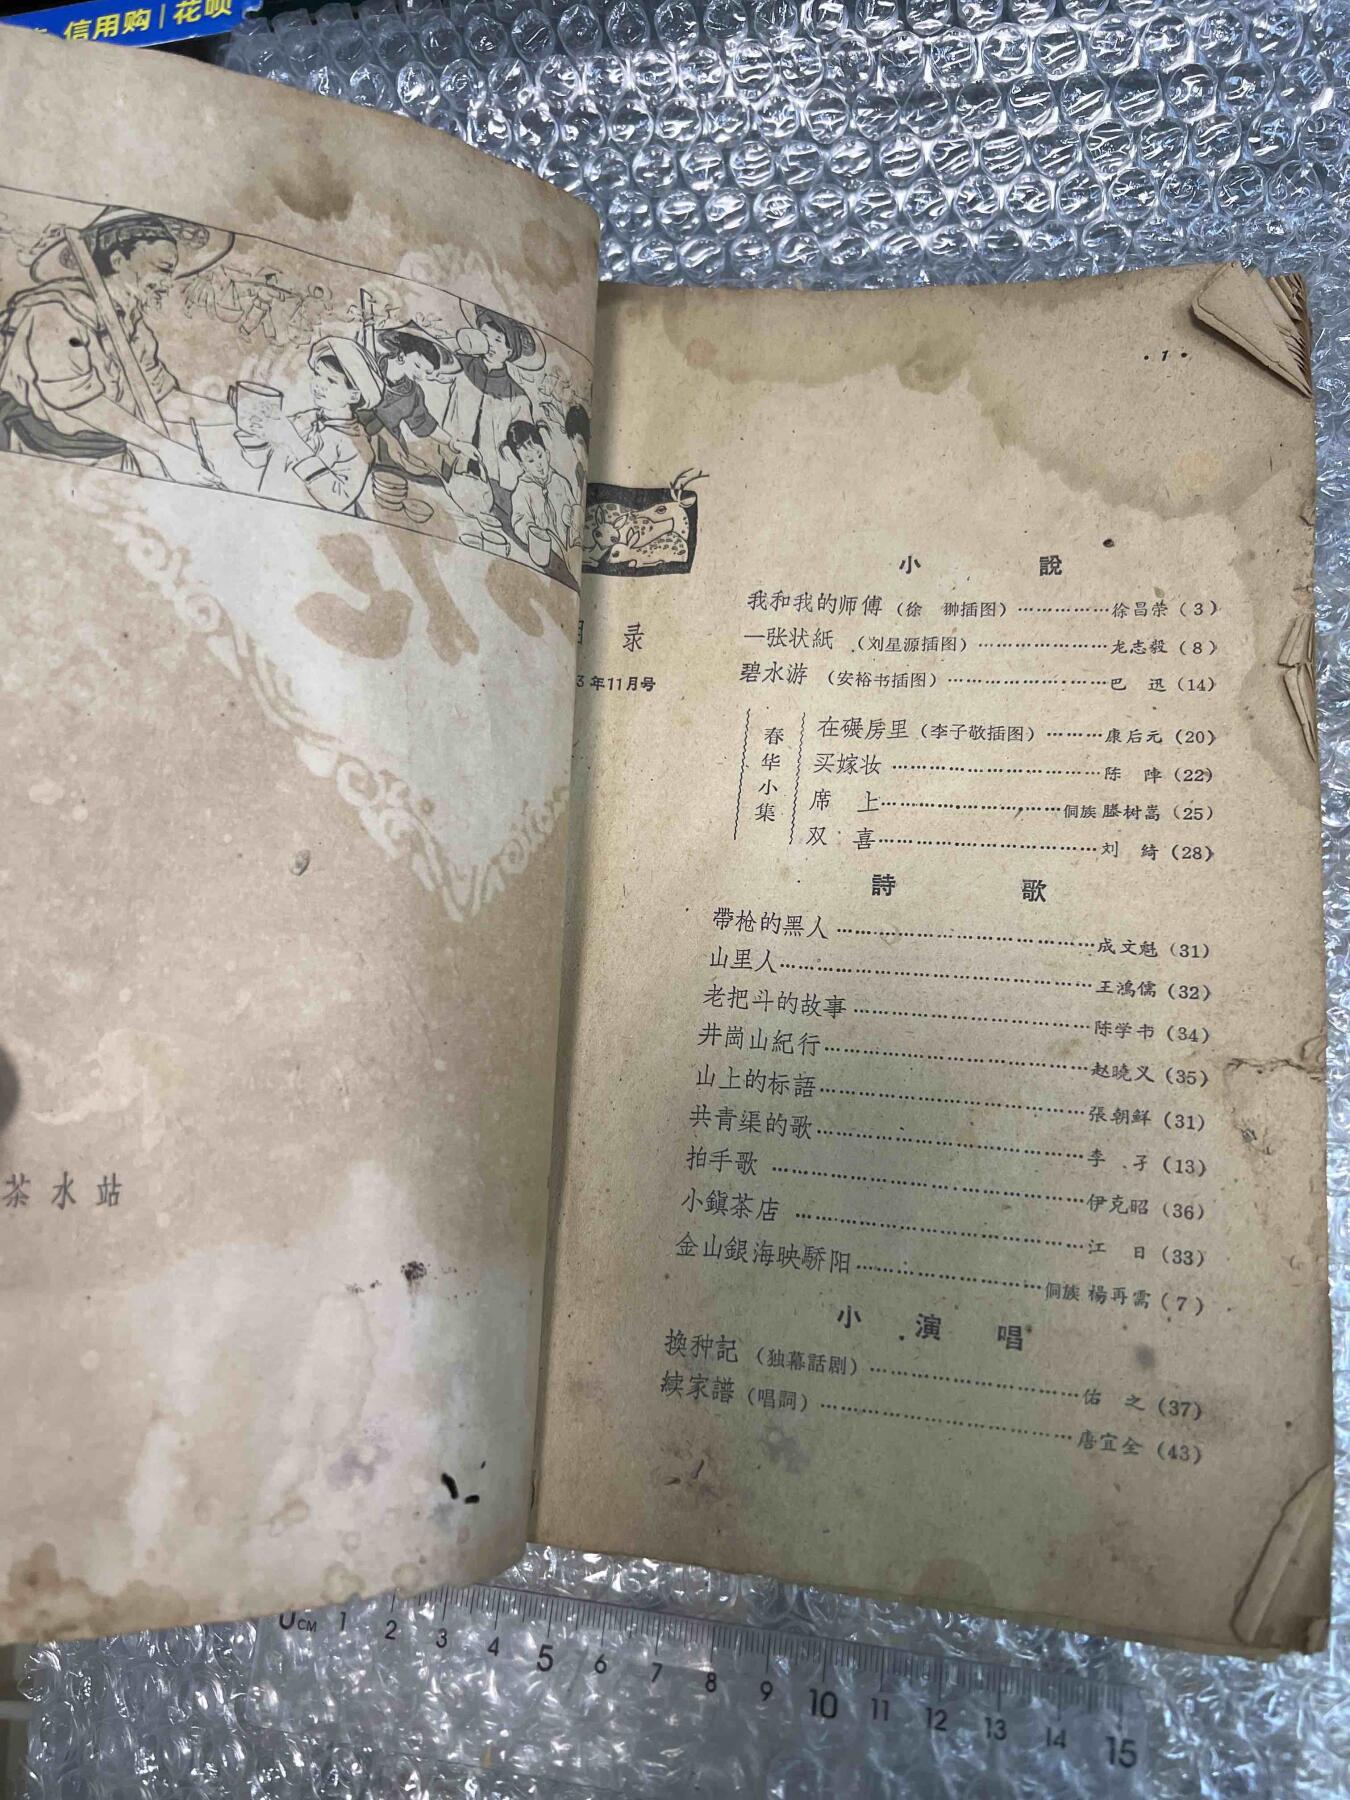 信用购 | 花呗
茶水站
·1·
目录
3年11月号
小説
我和我的师傅（徐 翀插图）……………徐昌荣（3）
一张状紙（刘星源插图）…………………龙志毅（8）
碧水游（安裕书插图）……………………巴 迅（14）
春华小集
在碾房里（李子敬插图）………康后元（20）
买嫁妆…………………………陈 陣（22）
席 上…………………………侗族 滕树嵩（25）
双 喜…………………………刘 綺（28）
詩歌
帶枪的黑人…………………………成文魁（31）
山里人…………………………王鴻儒（32）
老把斗的故事…………………………陈学书（34）
井崗山紀行…………………………赵曉义（35）
山上的标語…………………………張朝鮮（31）
共青渠的歌…………………………李 孑（13）
拍手歌…………………………伊克昭（36）
小鎭茶店…………………………江 日（33）
金山銀海映驕阳…………………………侗族 楊再需（7）
小演唱
換种記（独幕話剧）…………………………佑 之（37）
续家譜（唱詞）…………………………唐宜全（43）
0CM 1 2 3 4 5 6 7 8 9 10 11 12 13 14 15